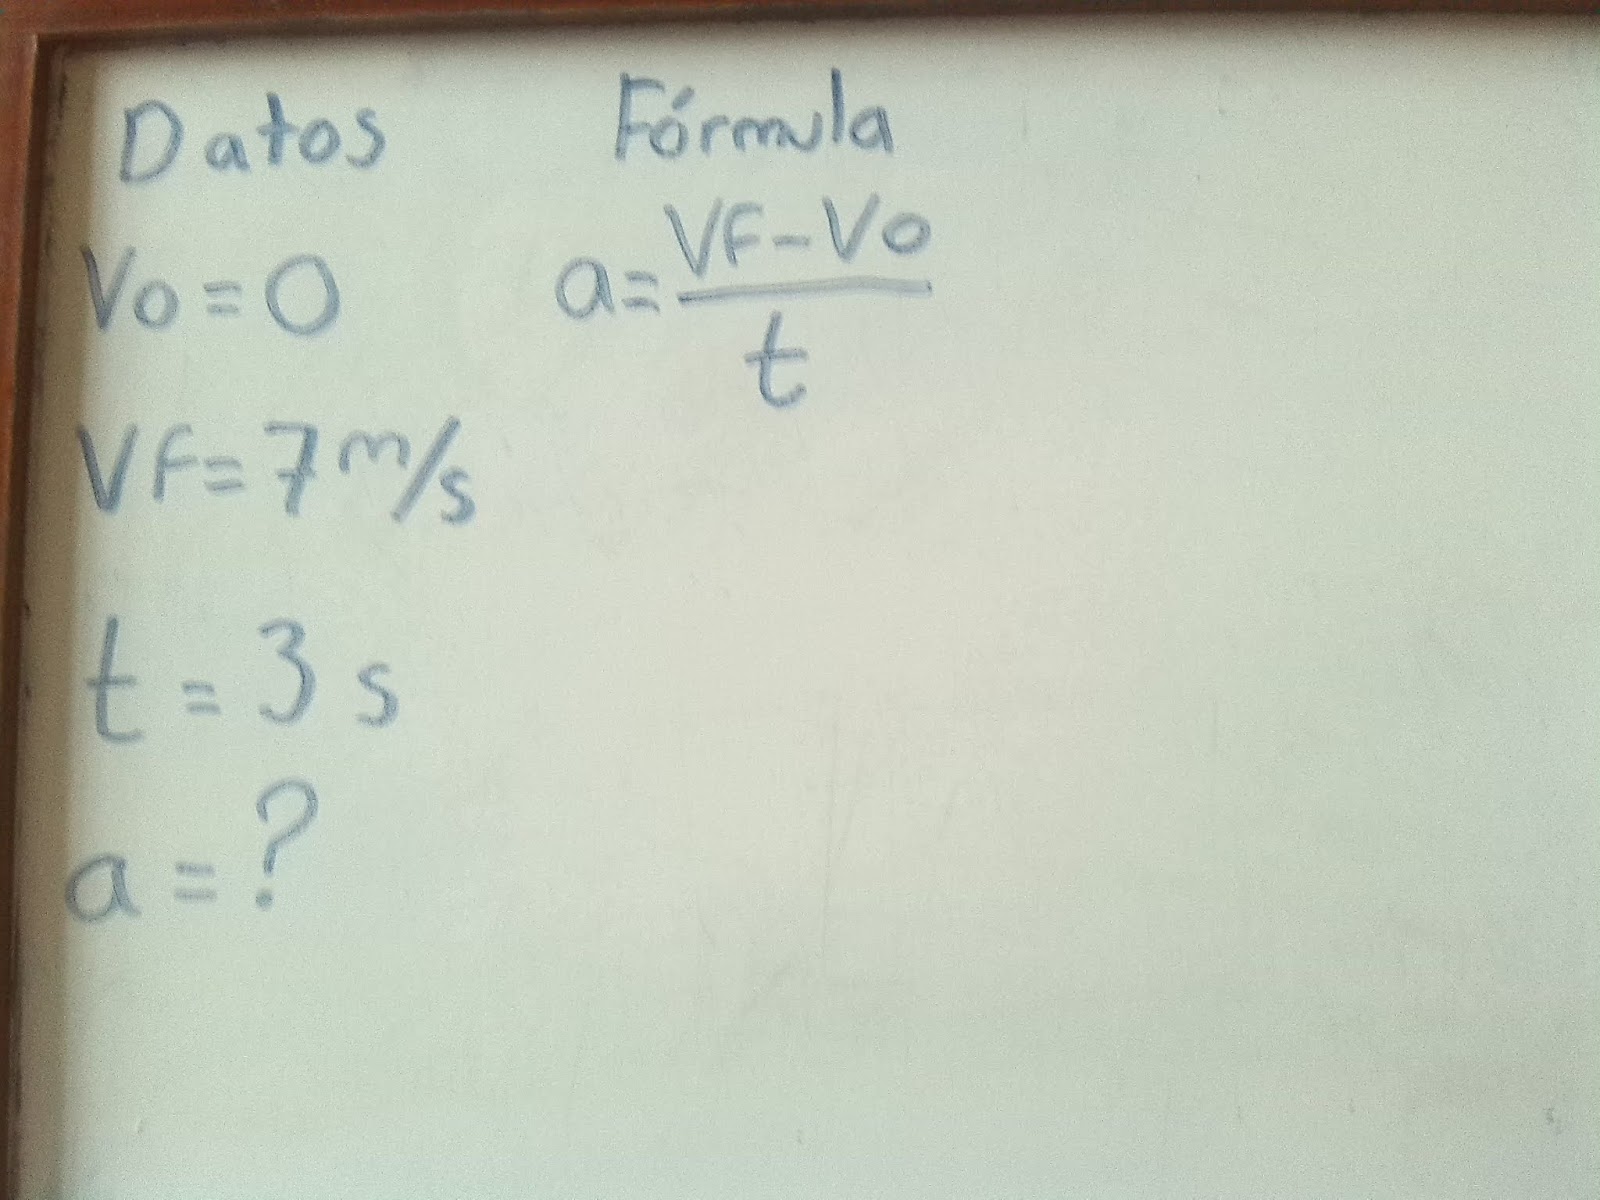 Datos Fórmula
Vo = 0 a = VF - Vo / t
VF = 7 m/s
t = 3 s
a = ?